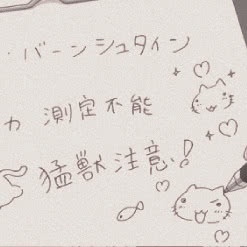 ・バーンシュタイン
カ 測定不能
猛獣注意!